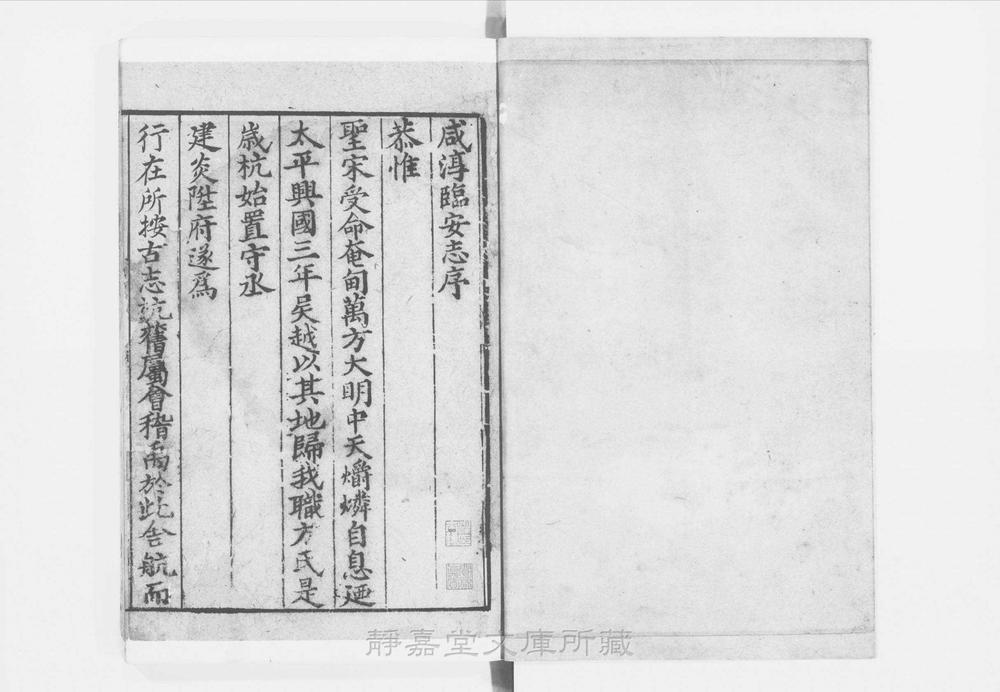 咸淳臨安志序
恭惟
聖宋受命奄甸萬方大明中天爝燐自息廼
太平興國三年吳越以其地歸我職方氏是
歲杭始置守丞
建炎陞府遂爲
行在所按古志杭舊屬會稽禹於此舍航而
靜嘉堂文庫所藏